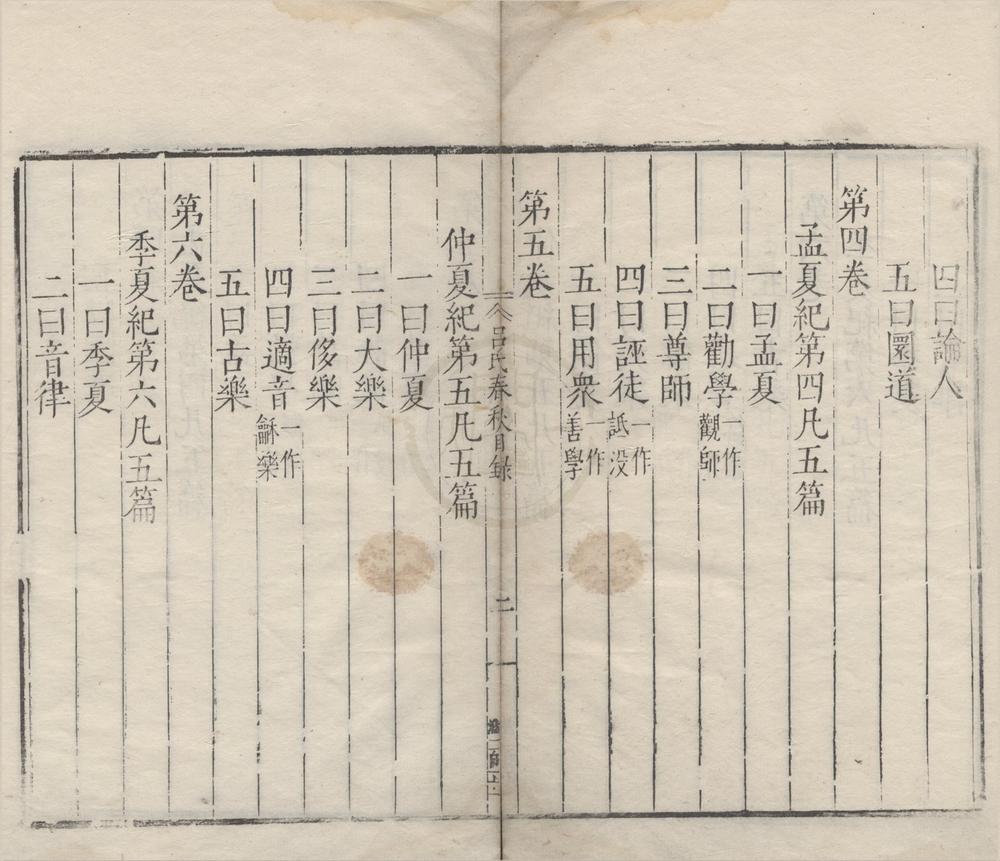 四曰論人
五曰圜道
第四卷
孟夏紀第四凡五篇
一曰孟夏
二曰勸學一作觀師
三曰尊師
四曰誣徒一作詆沒
五曰用衆一作善學
第五卷
呂氏春秋目錄
二
仲夏紀第五凡五篇
一曰仲夏
二曰大樂
三曰侈樂
四曰適音一作龢樂
五曰古樂
第六卷
季夏紀第六凡五篇
一曰季夏
二曰音律